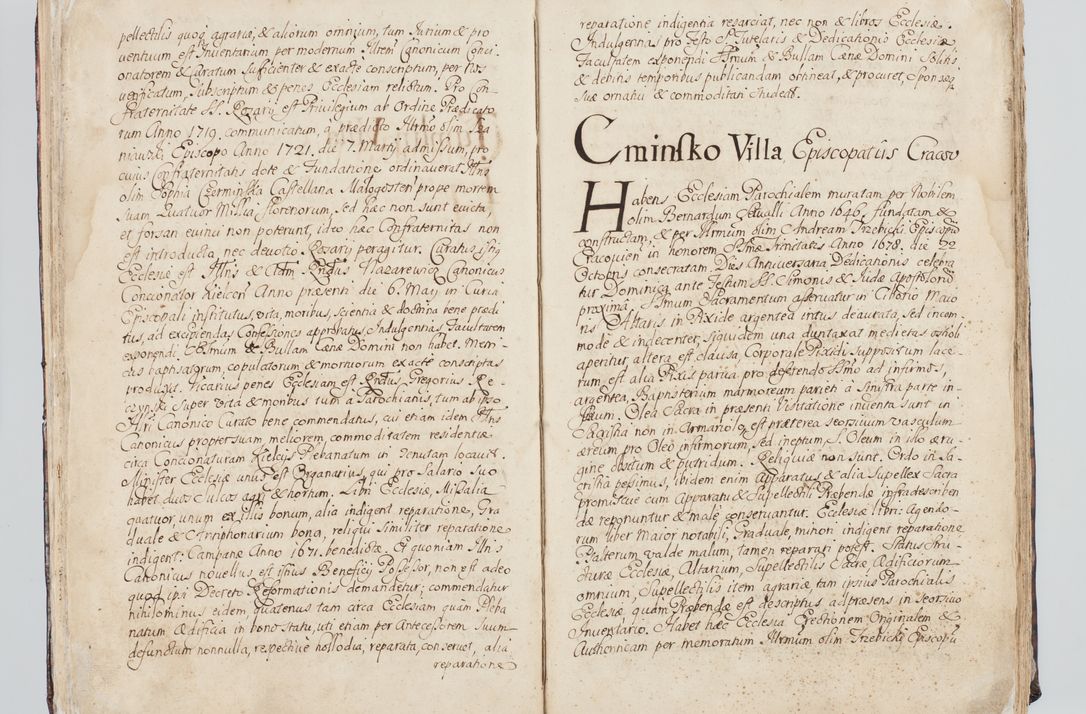 pellectilis quoq; agrariæ, & aliorum omnium, tam Jurium & pro
ventuum est Inventarium per modernum Illrem Canonicum Conci
onatorem & Curatum sufficienter & exacte conscriptum, per nos
verificatum, subscriptum & penes Ecclesiam relictum. Pro Con
fraternitate SS. Rosarii est Privilegium ab Ordine Prædicato
rum Anno 1719. communicatum, a prædicto Illrmo olim Sza
niawski Episcopo Anno 1721. die 7. Martij admissum, pro
cujus Confraternitatis dote & Fundatione ordinaverat Illris
olim Sophia Czerminska Castellana Malogosten: prope mortem
suam Quatuor Millia florenorum, sed hæc non sunt evicta,
et forsan evinci non poterunt, ideo hæc Confraternitas non
est introducta, nec devotio Rosarij peragitur. Curatus istij
Ecclesiæ est Illris & Adm. Rndus Nazarewicz Canonicus
Concionator Kielcen: Anno præsenti die 6. Maij in Curia
Episcopali institutus, vita, moribus, scientia & doctrina bene prædi
tus, ad excipiendas Confessiones approbatus, Indulgentias, Facultatem
exponendi SSmum & Bullam Cænæ Domini non habet. Metri
cas baptisatorum, copulatorum & mortuorum exacte conscriptas
produxit. Vicarius penes Ecclesiam est Rndus Gregorius Re
czynski super vita & moribus tum a Parochianis, tum ab ipso
Illri Canonico Curato bene commendatus, cui etiam idem Illris
Canonicus propter suam meliorem commoditatem residentiæ
circa Concionaturam Kielcij Plebanatum in Tenutam locavit.
Minister Ecclesiæ unus est Organarius, qui pro Salario suo
habet duos sulcos agri & hortum. Libri Ecclesiæ, Missalia
quatuor, unum ex illis bonum, alia indigent reparatione, Gra
duale & Antiphonarium bona, reliqui similiter reparatione
indigent. Campanæ Anno 1671. benedictæ. Et quoniam Illris
Canonicus novellus est istius Beneficij Possessor, non est adeo
quoq; ipsi Decreto Reformationis demandetur; commendatur
nihilominus eidem quatenus tam circa Ecclesiam quam Pleba
natum Ædificia in bono statu, uti etiam per Antecessorem suum
defunctum nonnulla, respective hollodia, reparata, conservet, alia
reparatione
reparatione indigentia resarciat, nec non & libros Ecclesiæ.
Indulgentias pro Festo S. Tutelaris & Dedicationis Ecclesiæ
Facultatem exponendi SSmum & Bullam Cænæ Domini solitis
& debitis temporibus publicandam obtineat, & procuret, Sponsæq
suæ ornatui & commoditati studeat.
Cminsko Villa Episcopatus Cracov
Habens Ecclesiam Parochialem muratam per Nobilem
olim Bernardum Servalli Anno 1646. fundatam &
constructam, & per Illrmum olim Andream Trzebicki Episcopum
Cracovien in honorem SSmæ Trinitatis Anno 1678. die 22
Octobris consecratam. Dies Anniversaria Dedicationis celebra
tur Dominica ante Festum SS. Simonis & Judæ Apostolorum
proxima. SSmum Sacramentum asservatur in Ciborio Maio
ris Altaris in Pixide argentea intus deaurata, sed incom
mode & indecenter, siquidem una duntaxat medietas ostioli
aperitur, altera est clausa, Corporale Pixidi suppositum lace
rum, est alia Pixis parva pro deferendo SSmo ad infirmos,
argentea. Baptisterium marmoreum parieti a sinistra parte in
fixum. Olea Sacra in præsenti Visitatione inventa sunt in
Sacristia non in Armariolo, est præterea seorsivum vasculum
æreum pro Oleo infirmorum, sed ineptum, S. Oleum in illo æru
gine obsitum & putridum. Reliquiæ non sunt. Ordo in Sa
cristia pessimus, ibidem enim Apparatus & alia Supellex Sacra
promiscue cum Apparatu & Supellectili Præbendæ infradescriben
dæ reponuntur & male conservantur. Ecclesiæ libri: Agendo-
rum liber Maior notabili, Graduale, minori indigent reparatione
Psalterum valde malum, tamen reparari potest. Status Stru-
cturæ Ecclesiæ, Altarium, Supellectilis Sacræ Ædificiorum
omnium, Supellectilis item agrariæ tam ipsius Parochialis
Ecclesiæ quam Præbendæ est descriptus ad præsens in seorsivo
Inventario. Habet hæc Ecclesia Erectionem Originalem &
Authenticam per memoratum Illrmum olim Trzebicki Episcopū